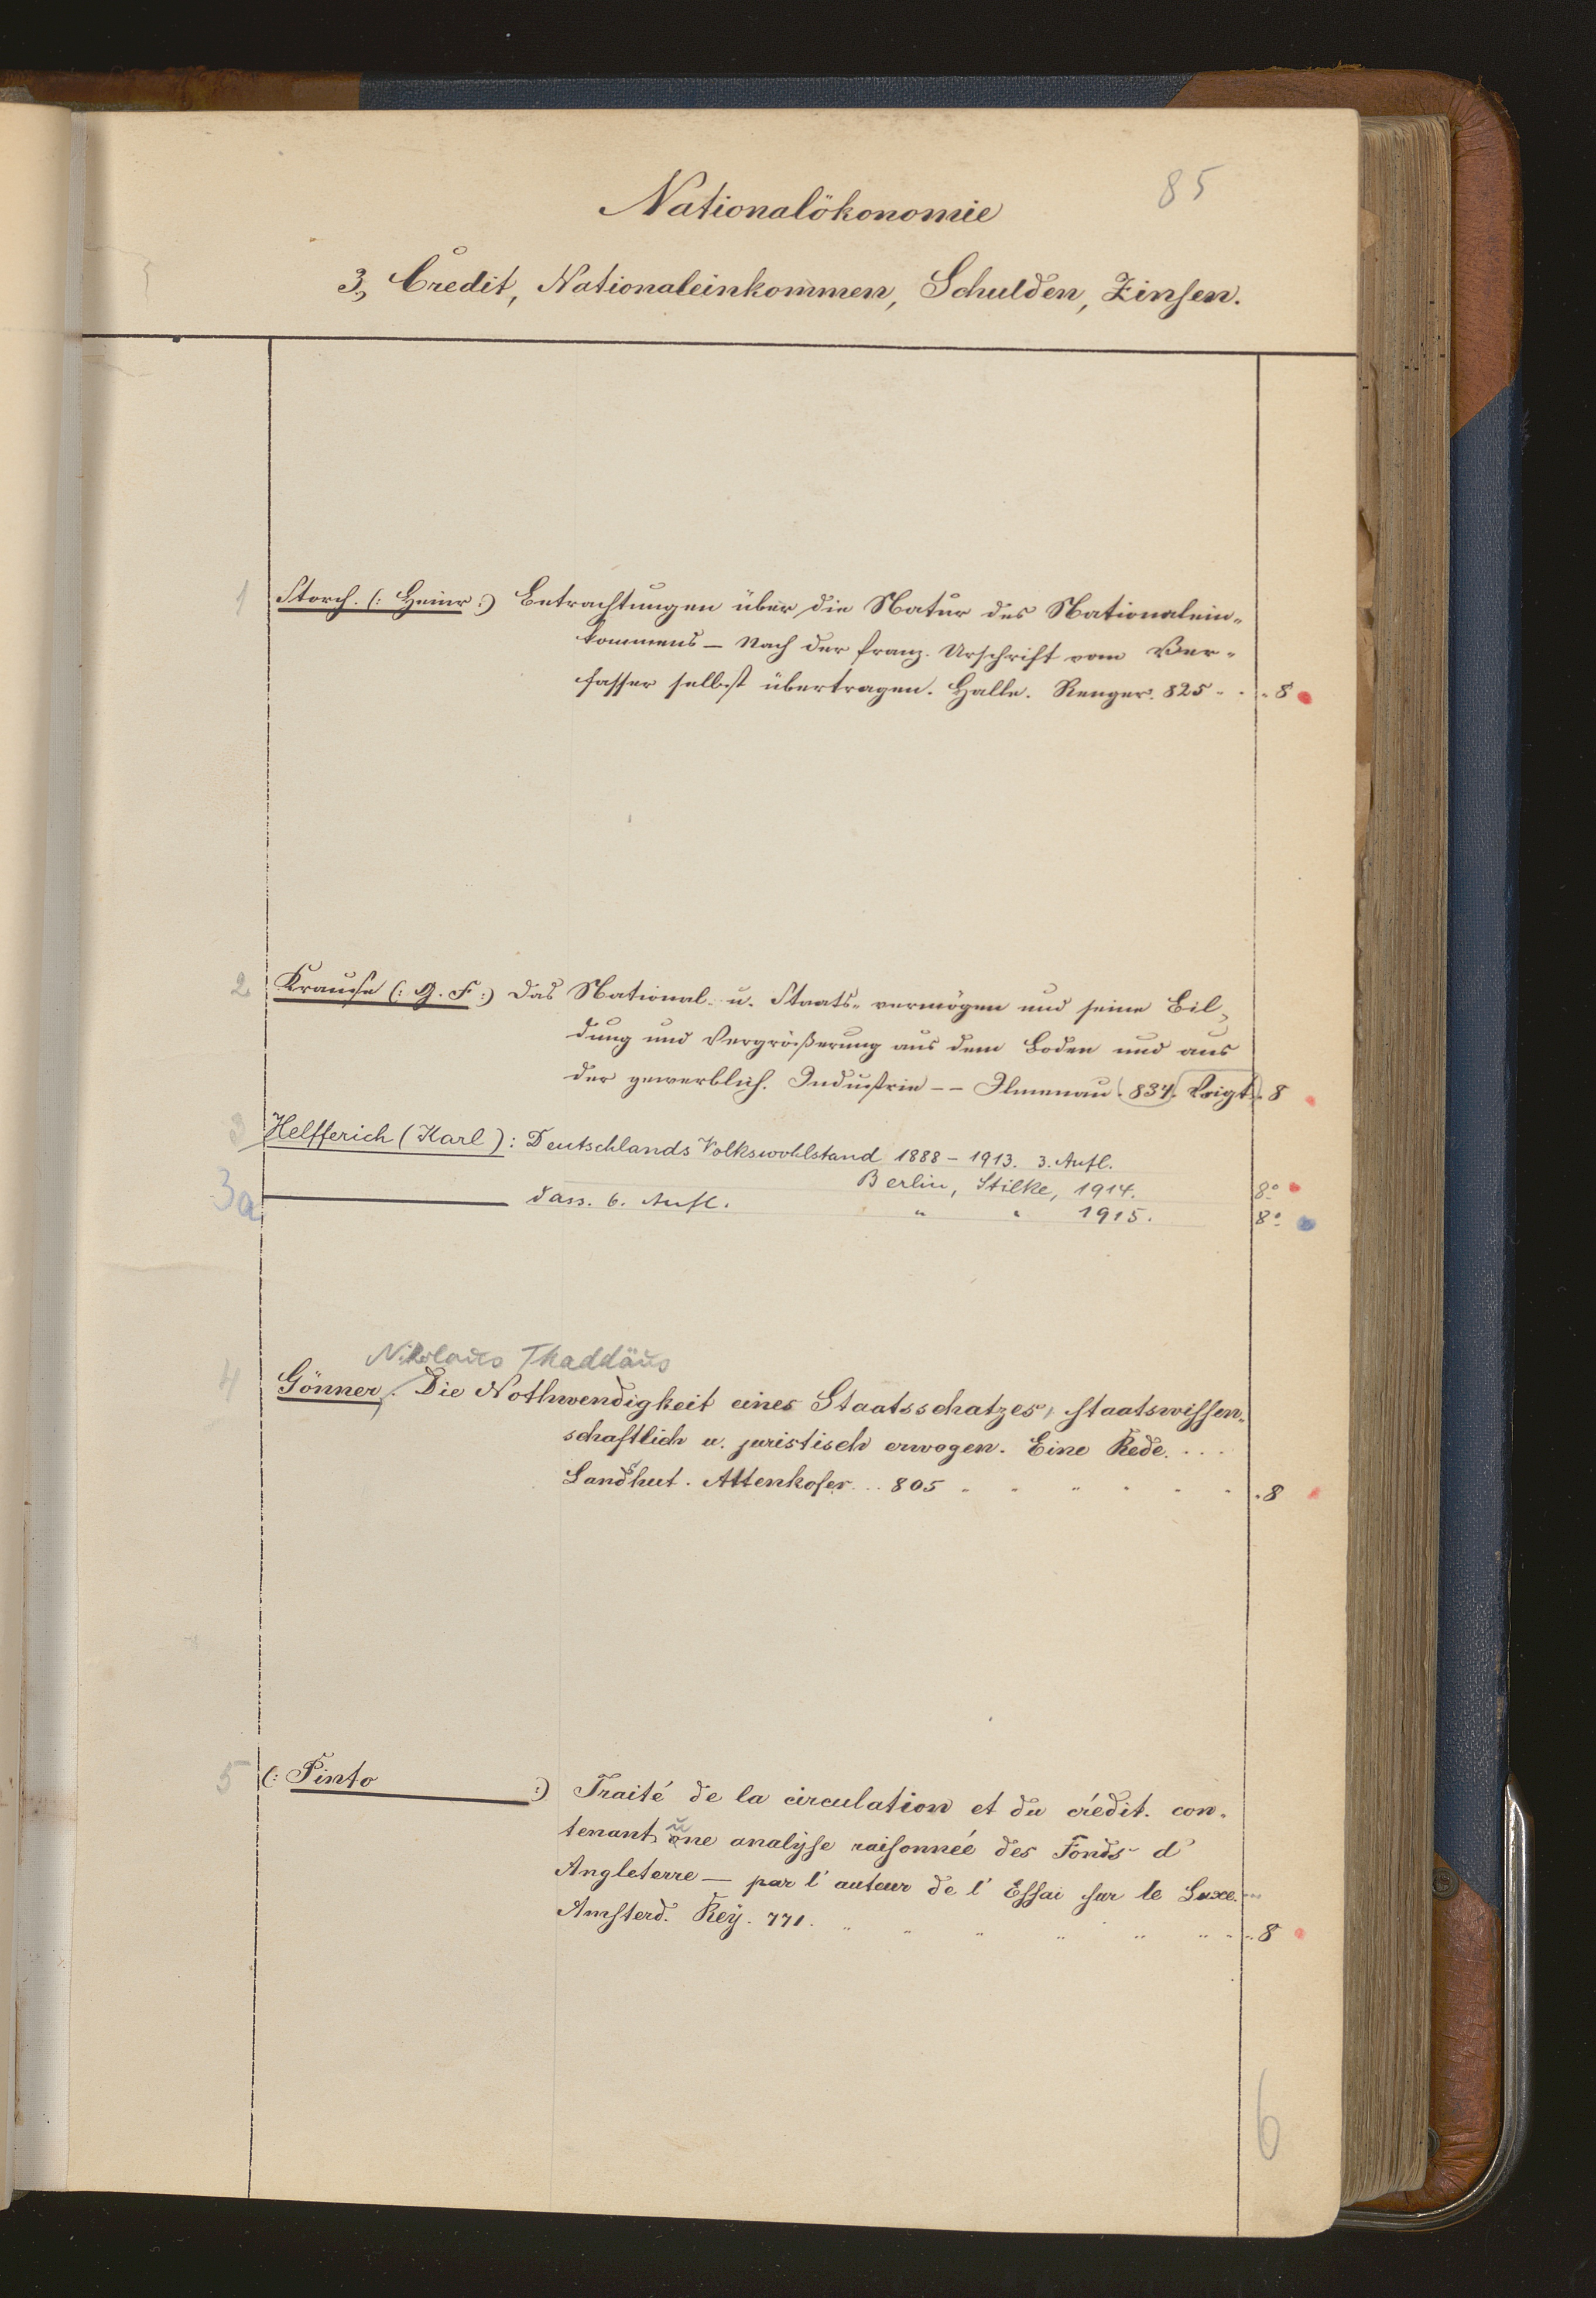 85
Nationalökonomie
3, Credit, Nationaleinkommen, Schulden, Zinsen.
1 Storch. (: Heinr :) Betrachtungen über die Natur des Nationalein-
kommens — Nach der franz. Urschrift vom Ver-
fasser selbst übertragen. Halle. Renger. 825 . . . 8
2 Krause (: G. F. :) Das National- u. Staats-vermögen und seine Bil-
dung und Vergrößerung aus dem Boden und aus
der gewerblich. Industrie -- Ilmenau. 834. Voigt. 8
3 Helfferich (Karl): Deutschlands Volkswohlstand 1888 - 1913. 3. Aufl.
Berlin, Stilke, 1914. 8°
3a ——— dass. 6. Aufl. " " 1915. 8°
Nikolaus Thaddäus
4 Gönner. Die Nothwendigkeit eines Staatsschatzes, staatswissen-
schaftlich u. juristisch erwogen. Eine Rede. . . .
Landshut. Attenkofer . . 805 . . . . . . . 8
5 (: Pinto ——— :) Traité de la circulation et du crédit. con-
tenant une analyse raisonnée des Fonds d'
Angleterre — par l'auteur de l'Essai sur le Luxe. ...
Amsterd. Rey. 771. . . . . . . . . 8
6